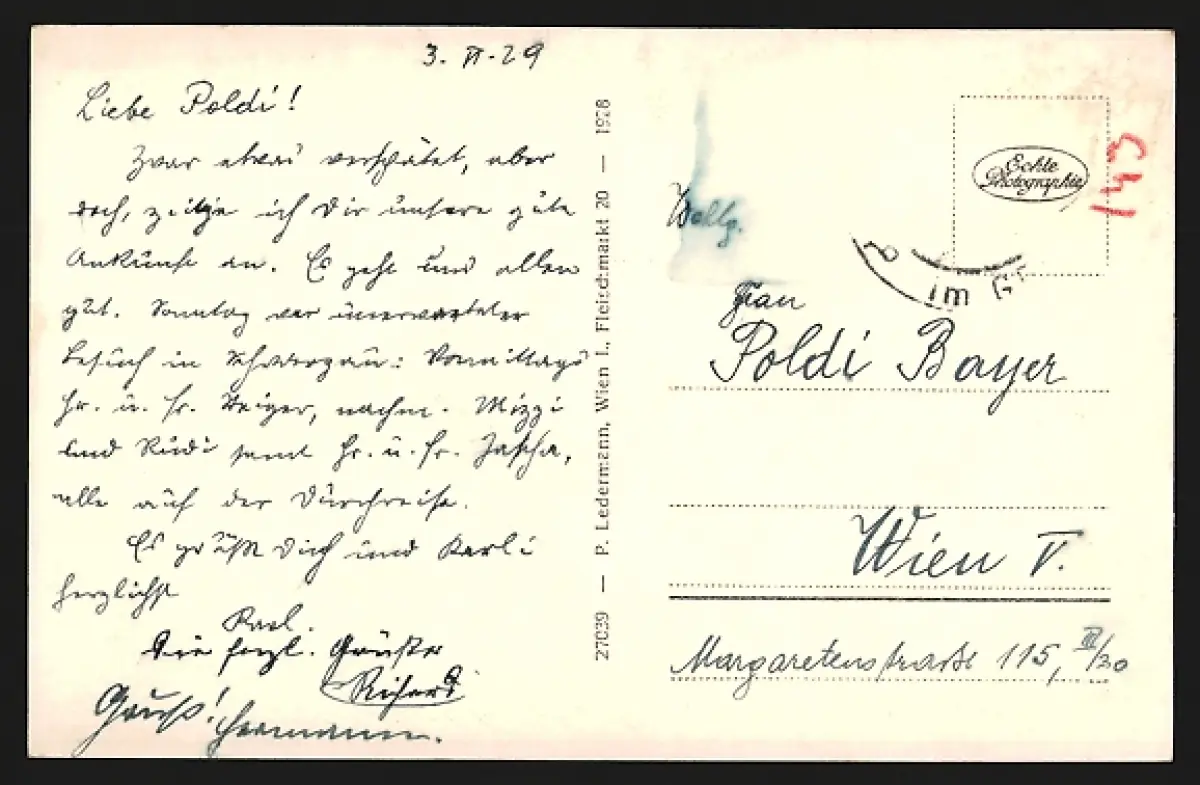 3. II. 29
Liebe Poldi!
Zwar etwas verspätet, aber
doch, zeige ich Dir unsere gute
Ankunft an. Es geht uns allen
gut. Sonntag war unerwarteter
Besuch in Schwarzau: Vormittags
Hr. u. Fr. Steiger, nachm. Mizzi
und Rudi samt Hr. u. Fr. Jascha,
alle auf der Durchreise.
Es grüßt Dich und Karli
herzlichst
Karl.
Die herzl. Grüße
Richard
Gruß! Hermann.
27039 — P. Ledermann, Wien I., Fleischmarkt 20 — 1928
Echte
Photographie
im
Wohlg.
Frau
Poldi Bayer
Wien V.
Margaretenstraße 115, III/20